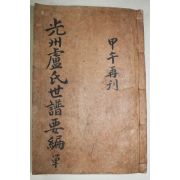 甲午再刊
光州盧氏世譜要編